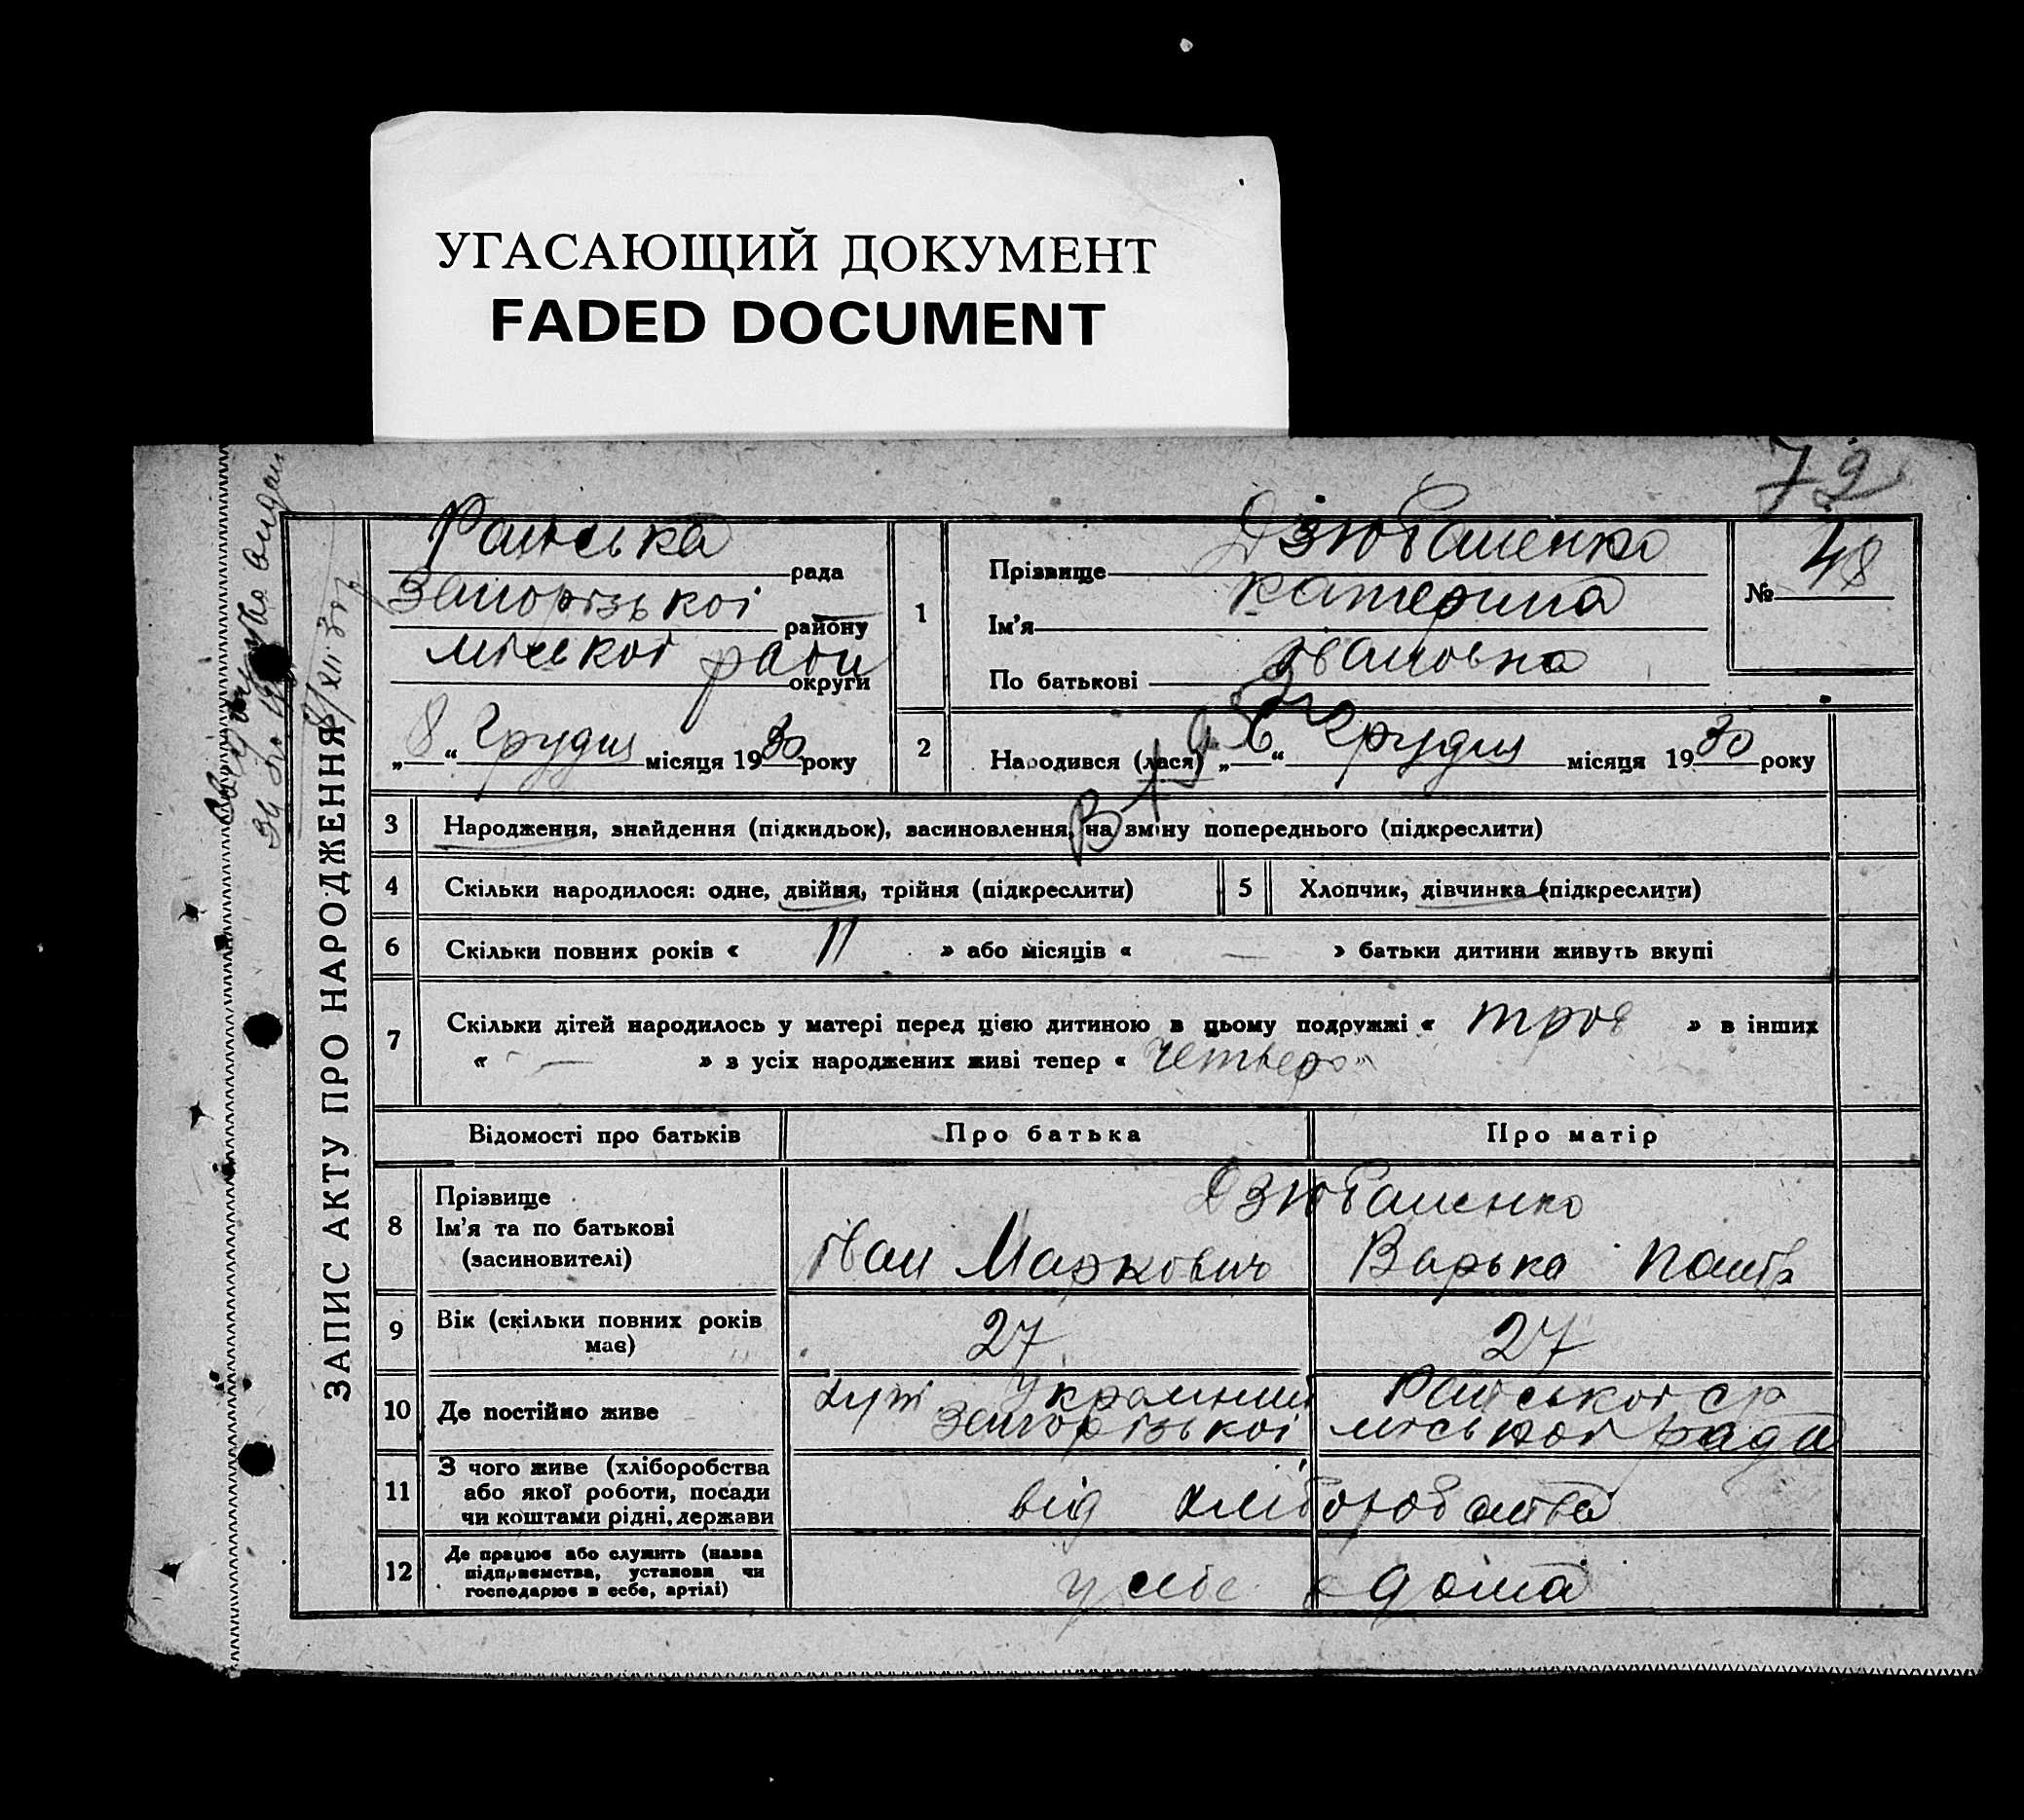 УГАСАЮЩИЙ ДОКУМЕНТ
FADED DOCUMENT
72
ЗАПИС АКТУ ПРО НАРОДЖЕННЯ
8/XII 30 р
Раїська рада
Запорізької району
міської ради округи
„8“ Грудня місяця 1930 року
1
Прізвище Дзюбаненко
Ім'я Катерина
По батькові Івановна
№ 48
2
Народився (лася) „6“ Грудня місяця 1930 року
3 Народження, знайдення (підкидьок), засиновлення, на зміну попереднього (підкреслити)
4 Скільки народилося: одне, двійня, трійня (підкреслити)
5 Хлопчик, дівчинка (підкреслити)
6 Скільки повних років « 11 » або місяців « — » батьки дитини живуть вкупі
7 Скільки дітей народилось у матері перед цією дитиною в цьому подружжі « троє » в інших
« — » з усіх народжених живі тепер « четверо »
Відомості про батьків Про батька Про матір
8
Прізвище
Ім'я та по батькові
(засиновителі)
Дзюбаненко
Іван Маркович Варька
9 Вік (скільки повних років
має)
27 27
10 Де постійно живе
хут Раїської ср
Запорізької міської ради
11
З чого живе (хліборобства
або якої роботи, посади
чи коштами рідні, держави
від хліборобства
12
Де працює або служить (назва
підприємства, установи чи
господарює в себе, артілі)
у себе дома